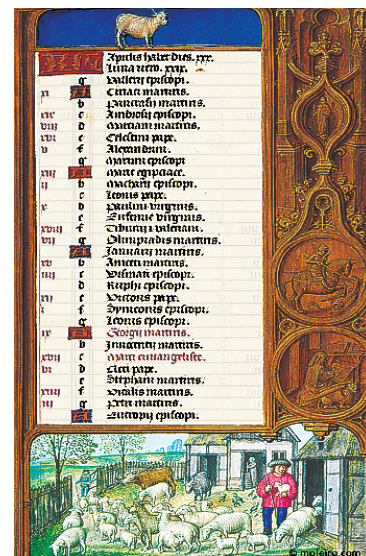 Aprilis habet dies. xxx.
Luna vero. xxix.
g Valerii episcopi.
xi A martiris.
b martiris.
xix c Ambrosii episcopi.
viii d Marciani martiris.
xvi e Celestini pape.
v f Alexandrini.
g episcopi
xiii A Marie egipciace.
ii b Macharii episcopi.
c Leonis pape.
x d virginis.
e Eufemie virginis.
xviii f Tiburcii valeriani.
vii g Olimpiadis martiris.
A Januarii martiris.
xv b Aniceti martiris.
iiii c episcopi.
d Ruphi episcopi.
xii e Victoris pape.
i f Symeonis episcopi.
g Leonis episcopi.
ix A Georgii martiris.
b martiris.
xvii c Marci euuangeliste.
vi d Cleti pape.
e Stephani martiris.
xiiii f Vitalis martiris.
iii g Petri martiris.
A Eutropii episcopi.
© moleiro.com